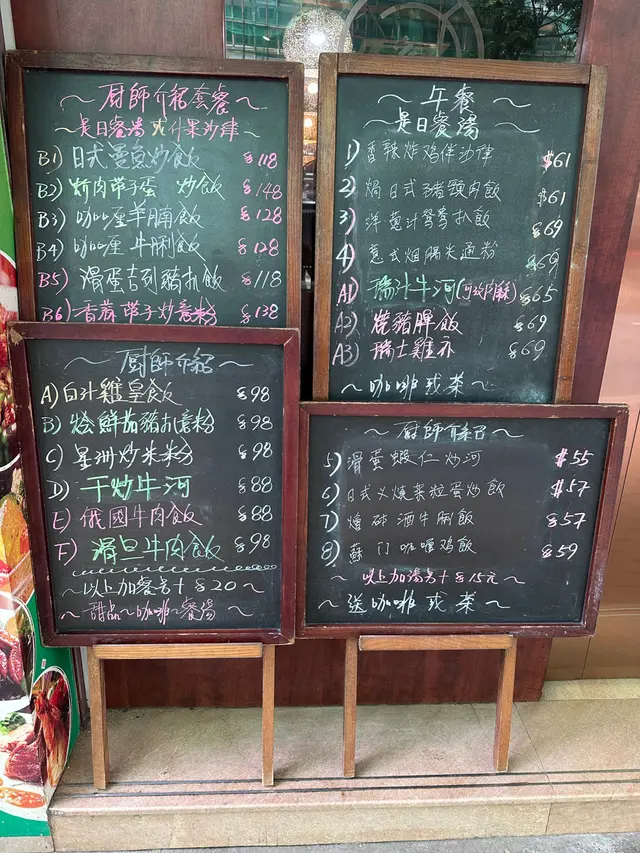 ~廚師介紹套餐~
~是日餐湯或什果沙律~
B1)日式墨魚炒飯 $118
B2)蟹肉帶子蛋 炒飯 $148
B3)咖喱羊腩飯 $128
B4)咖喱牛脷飯 $128
B5)滑蛋吉列豬扒飯 $118
B6)香蒜帶子炒意粉 $138
~廚師介紹~
A)白汁雞皇飯 $98
B)燴鮮茄豬扒意粉 $98
C)星洲炒米粉 $98
D)干炒牛河 $88
E)俄國牛肉飯 $88
F)滑旦牛肉飯 $98
~以上加餐者+$20~
~甜品~咖啡~餐湯~
~午餐~
是日餐湯
1)香辣炸鸡伴沙律 $61
2)焗日式豬頸肉飯 $61
3)洋蔥汁鴛鴦扒飯 $69
4)意式烟腸尖通粉 $59
A1)瑞汁牛河 $65
A2)燒豬髀飯 $69
A3)瑞士雞 $69
~咖啡或茶~
~廚師介紹~
5)滑蛋蝦仁炒河 $55
6)日式义燒菜粒蛋炒飯 $57
7)燴砵酒牛脷飯 $57
8)蘇門咖喱鸡飯 $59
~以上加湯者+$15元~
~送咖啡或茶~